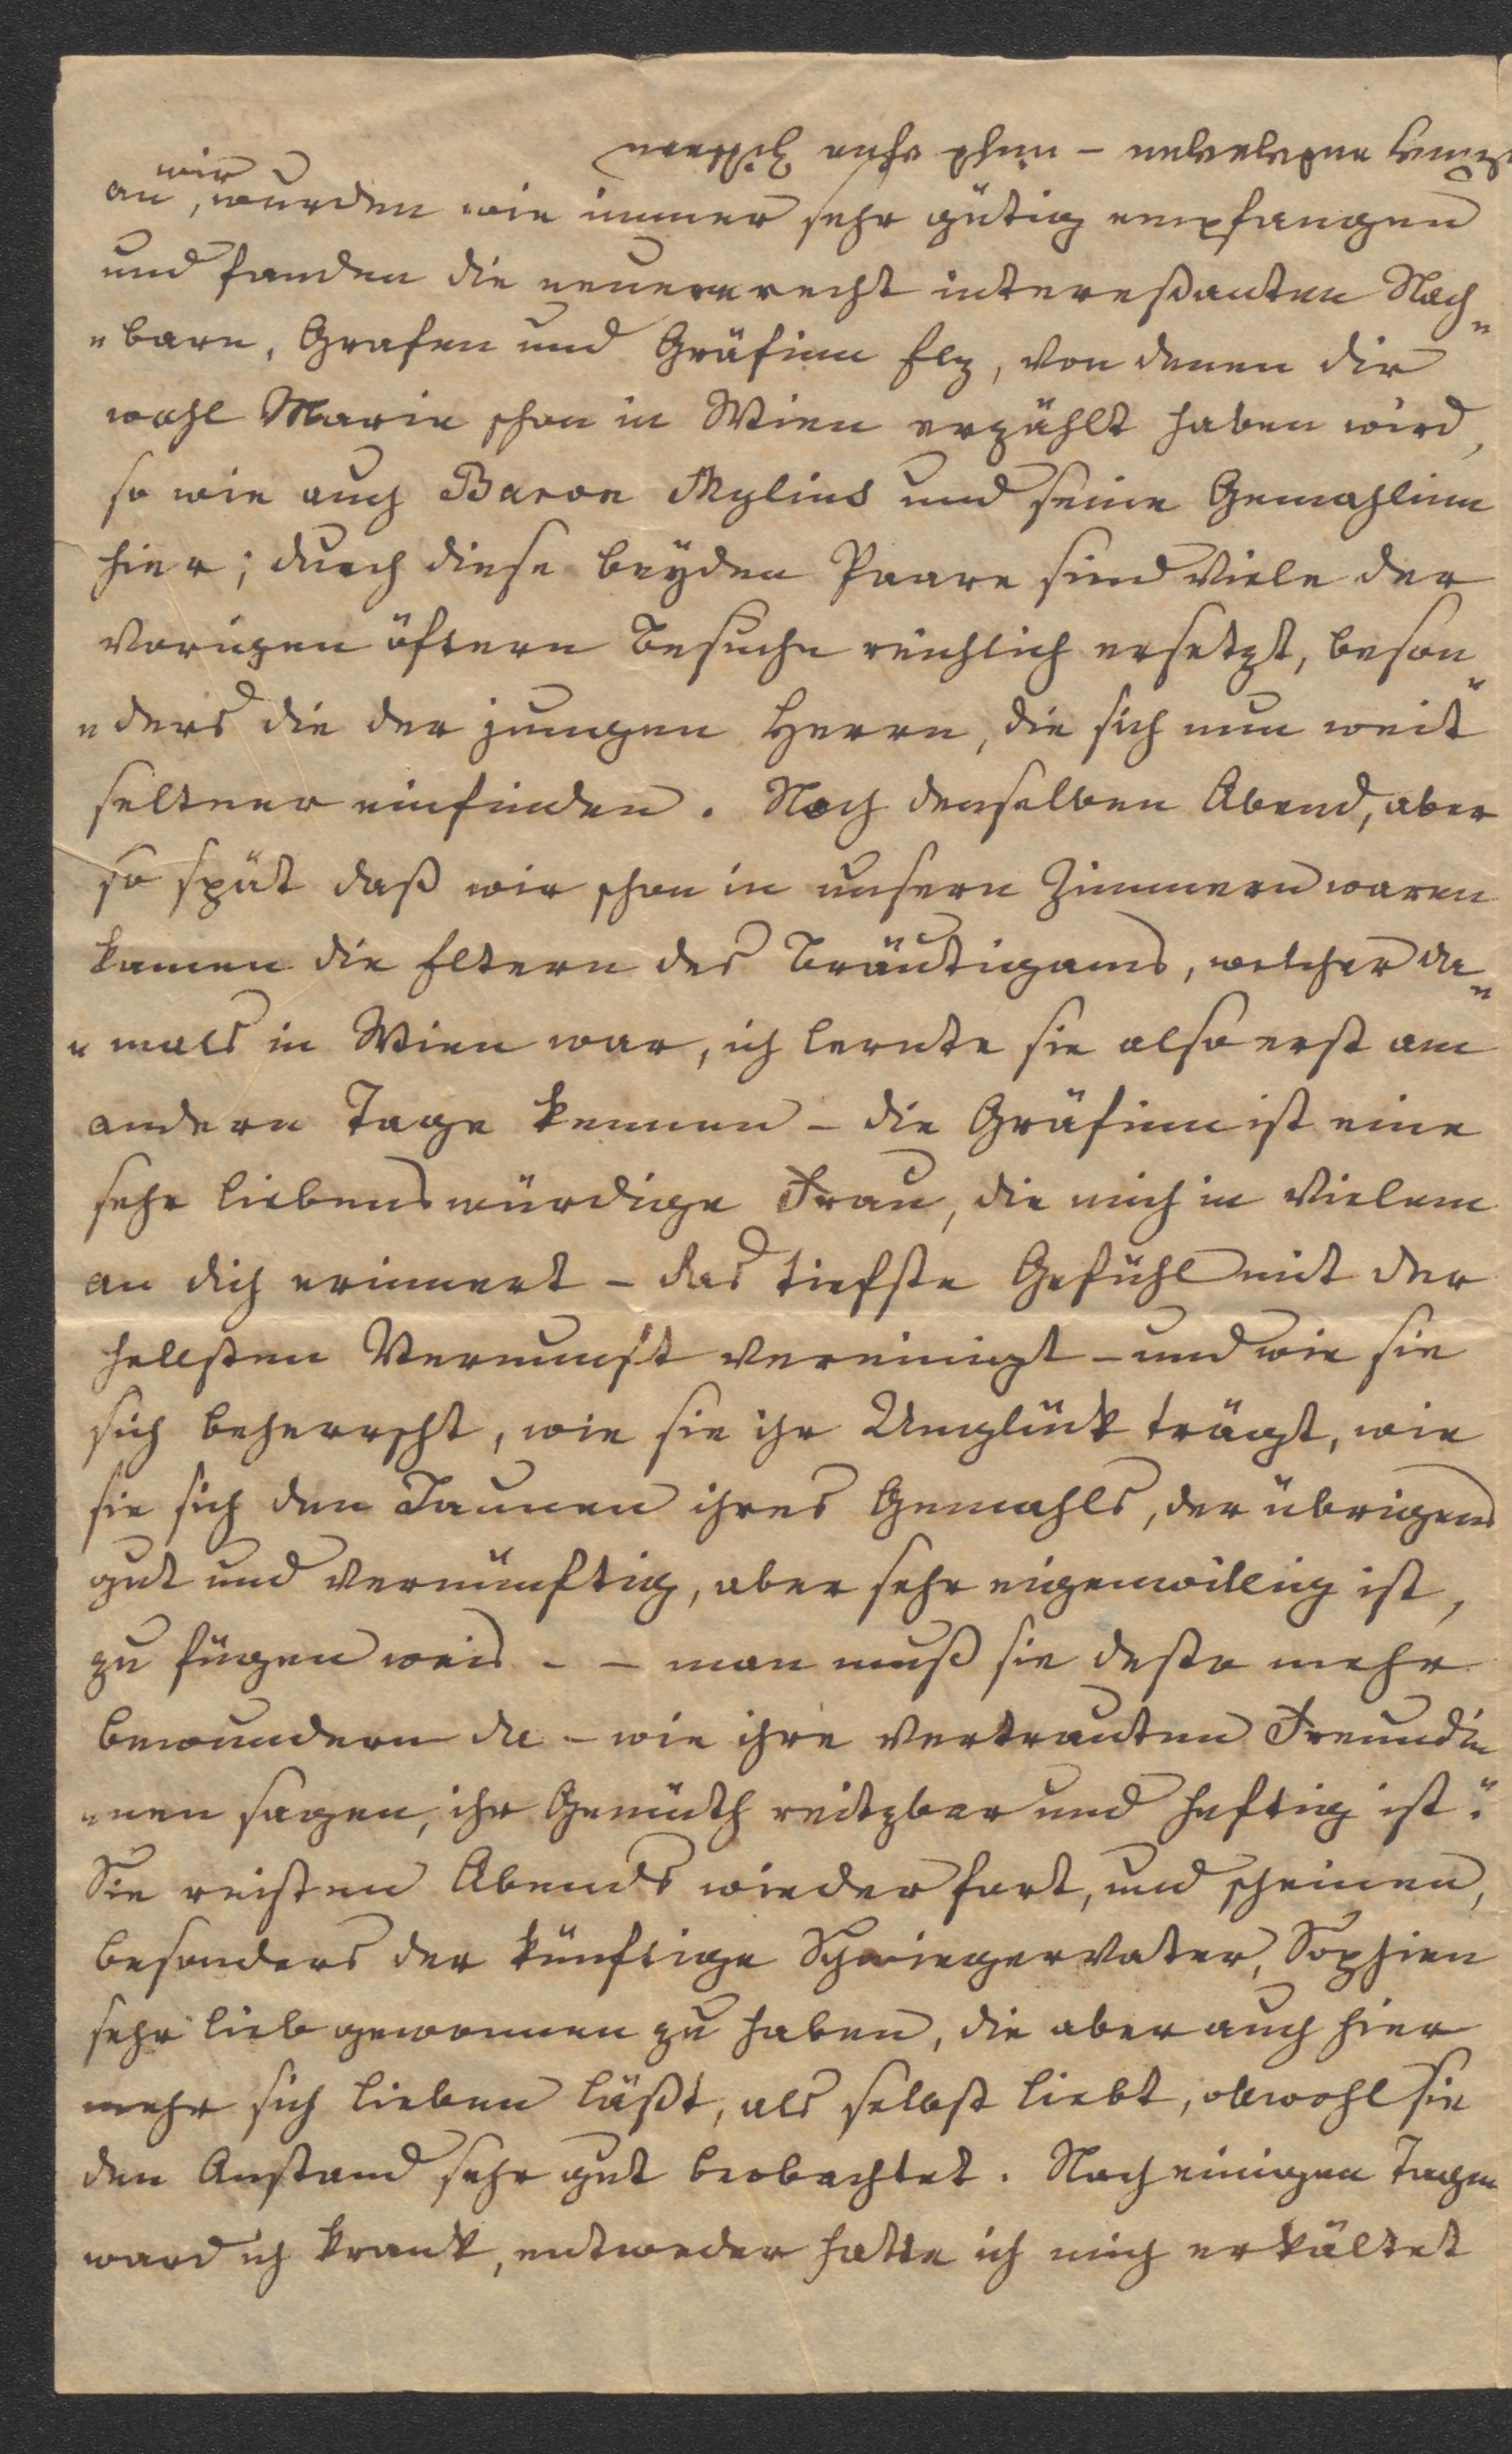 an, wir wurden wie immer sehr gütig empfangen
und fanden die neuern recht intereßanten Nach„
„barn, Grafen und Gräfinn Elz, von denen dir
wohl Marie schon in Wien erzählt haben wird,
so wie auch Baron Mylius und seine Gemahlinn
hier; durch diese beyden Paare sind viele der
vorigen öftern Besuche reichlich ersetzt, beson„
„ders die der jungen Herrn, die sich nun weit
seltner einfinden. Noch denselben Abend, aber
so spät daß wir schon in unsern Zimmern waren
kamen die Eltern des Bräutigams, welcher da„
„mals in Wien war, ich lernte sie also erst am
andern Tage kennen – die Gräfinn ist eine
sehr liebenswürdige Frau, die mich in Vielem
an dich erinnert – das tiefste Gefühl mit der
hellsten Vernunft vereinigt – und wie sie
sich beherrscht, wie sie ihr Unglück trägt, wie
sie sich den Launen ihres Gemahls, der übrigens
gut und vernünftig, aber sehr eigenwillig ist,
zu fügen weis – – man muß sie desto mehr
bewundern da – wie ihre vertrauten Freundin„
„nen sagen, ihr Gemüth reitzbar und heftig ist.
Sie reisten Abends wieder fort, und scheinen,
besonders der künftige Schwiegervater, Sophien
sehr lieb gewonnen zu haben, die aber auch hier
mehr sich lieben läßt, als selbst liebt, obwohl sie
den Anstand sehr gut beobachtet. Nach einigen Tagen
ward ich krank, entweder hatte ich mich erkältet